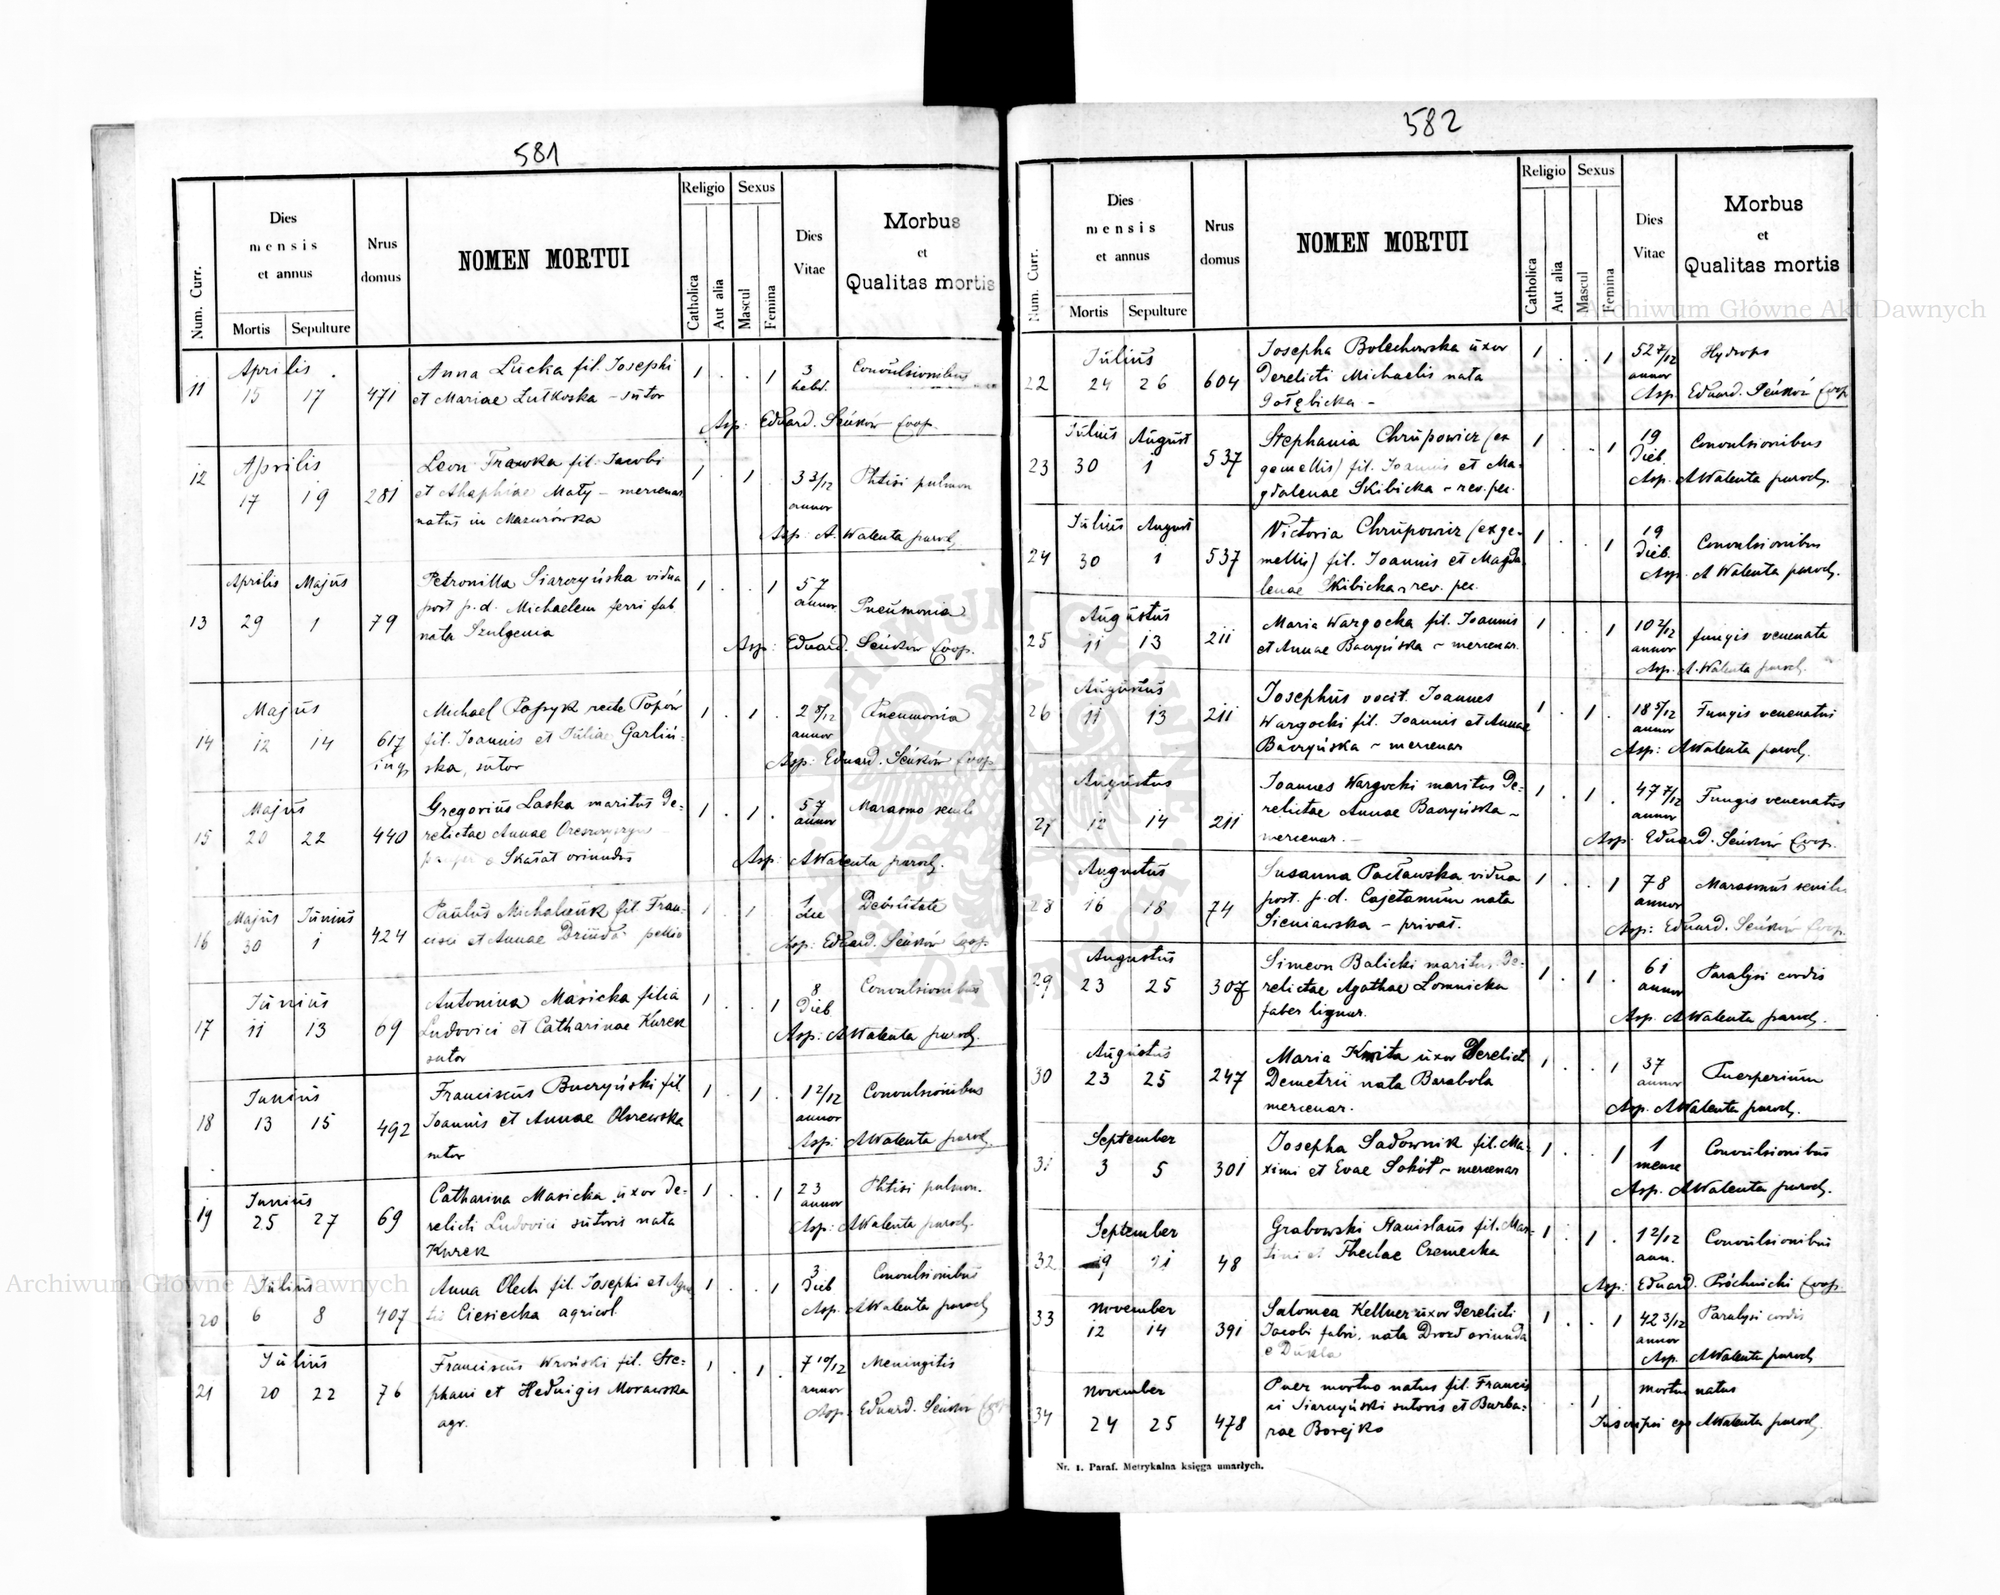 581
Num. Curr.
Dies
mensis
et annus
Mortis
Sepulture
Nrus
domus
NOMEN MORTUI
Religio
Catholica
Aut alia
Sexus
Mascul
Femina
Dies
Vitae
Morbus
et
Qualitas mortis
Aprilis
11 15 17 471
Anna Lucka fil. Josephi
et Mariae Lutkoska – sutor
1 . . 1
3
hebd.
Convulsionibus
Asp: Eduard. Sénków Coop.
Aprilis
12 17 19 281
Leon Frawka fil. Jacobi
et Ahaphiae Mały – mercenar
natus in Mazurówka
1 . 1
3 3/12
annor
Phtisi pulmon
Asp: A. Walenta paroch.
Aprilis Majus
13 29 1 79
Petronilla Siarczyńska vidua
post p. d. Michaelem ferri fab
nata Szulgenia
1 . . 1
57
annor
Pneumonia
Asp: Eduard. Sénków Coop.
Majus
14 12 14 617
Michael recte Popów
fil. Joannis et Juliae Garliń-
ska, sutor
1 . 1 .
2 8/12
annor
Pneumonia
Asp: Eduard. Sénków Coop.
Majus
15 20 22 440
Gregorius Laska maritus de-
relictae Annae
e Skałat oriundus
1 . 1 .
57
annor
Marasmo senili
Asp: A Walenta paroch.
Majus Junius
16 30 1 424
Paulus Michalczuk fil. Fran-
cisci et Annae pellio
1 . 1
1
die
Debilitate
Asp: Eduard. Sénków Coop.
Junius
17 11 13 69
Antonina Masicka filia
Ludovici et Catharinae Kurek
sutor
1 . . 1
8
dieb
Convulsionibus
Asp: A Walenta paroch.
Junius
18 13 15 492
Franciscus Buczyński fil.
Joannis et Annae Olszewska
sutor
1 . 1 .
1 2/12
annor
Convulsionibus
Asp: A Walenta paroch.
Junius
19 25 27 69
Catharina Masicka uxor de-
relicti Ludovici sutoris nata
Kurek
1 . . 1
23
annor
Phtisi pulmon.
Asp: A Walenta paroch.
Julius
20 6 8 407
Anna Olech fil. Josephi et
Ciesiecka agricol
1 . . 1
3
dieb
Convulsionibus
Asp. A Walenta paroch
Julius
21 20 22 76
Franciscus Wroński fil. Ste-
phani et Hedvigis Morawska
agr.
1 . 1 .
7 10/12
annor
Meningitis
Asp: Eduard. Sénków
582
Num. Curr.
Dies
mensis
et annus
Mortis
Sepulture
Nrus
domus
NOMEN MORTUI
Religio
Catholica
Aut alia
Sexus
Mascul
Femina
Dies
Vitae
Morbus
et
Qualitas mortis
Julius
22 24 26 604
Josepha Bolechowska uxor
derelicti Michaelis nata
Gołębicka –
1 . . 1
52 7/12
annor
Hydrops
Asp. Eduard. Sénków Coop
Julius August
23 30 1 537
Stephania Chrupowicz (ex
gemellis) fil. Joannis et Ma-
gdalenae Skibicka – rev. pec.
1 . . 1
19
dieb.
Convulsionibus
Asp. A Walenta paroch.
Julius August
24 30 1 537
Victoria Chrupowicz (ex ge-
mellis) fil. Joannis et Magda-
lenae Skibicka – rev. pec.
1 . . 1
19
dieb.
Convulsionibus
Asp. A Walenta paroch.
Augustus
25 11 13 211
Maria Wargocka fil. Joannis
et Annae Baczyńska – mercenar.
1 . . 1
10 2/12
annor
fungis venenata
Asp. A. Walenta paroch.
Augustus
26 11 13 211
Josephus vocit. Joannes
Wargocki fil. Joannis et Annae
Baczyńska – mercenar
1 . 1 .
18 5/12
annor
Fungis venenatus
Asp: A Walenta paroch.
Augustus
27 12 14 211
Joannes Wargocki maritus de-
relictae Annae Baczyńska –
mercenar. –
1 . 1 .
47 7/12
annor
Fungis venenatus
Asp: Eduard. Sénków Coop.
Augustus
28 16 18 74
Susanna Pacławska vidua
post. p. d. Cajetanum nata
Sieniawska – privat.
1 . . 1
78
annor
Marasmus senilis
Asp: Eduard. Sénków Coop.
Augustus
29 23 25 307
Simeon Balicki maritus de-
relictae Agathae Lomnicka
faber lignar.
1 . 1 .
61
annor
Paralysi cordis
Asp. A Walenta paroch.
Augustus
30 23 25 247
Maria Kwita uxor derelict
Demetrii nata Barabola
mercenar.
1 . . 1
37
annor
Puerperium
Asp. A Walenta paroch.
September
31 3 5 301
Josepha Sadownik fil. Ma-
ximi et Evae Sokół – mercenar
1 . . 1
1
mense
Convulsionibus
Asp. A Walenta paroch.
September
32 19 21 48
Grabowski Stanislaus fil. Mar-
tini et Theclae Czemecka
1 . 1 .
1 2/12
ann.
Convulsionibus
Asp: Eduard. Próchnicki Coop.
November
33 12 14 391
Salomea Kellner uxor derelicti
Jacobi fabri, nata Drozd oriunda
e Dukla
1 . . 1
42 3/12
annor
Paralysi cordis
Asp. A Walenta paroch
November
34 24 25 478
Puer mortuo natus fil. Francis
ci Siarczyński sutoris et Barba-
rae Borejko
. 1
mortuo natus
Inscripsi ego A Walenta paroch.
Nr. 1. Paraf. Metrykalna księga umarłych.
Archiwum Główne Akt Dawnych
Archiwum Główne Akt Dawnych
ARCHIWUM GŁÓWNE AKT DAWNYCH